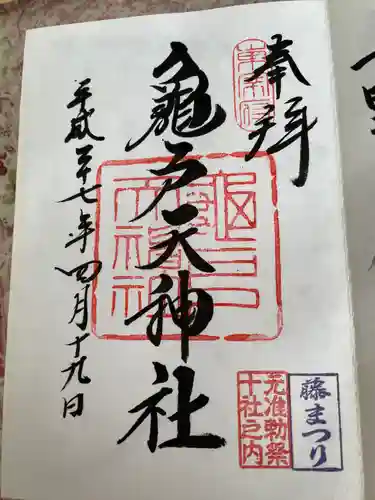 奉拝
龜戸天神社
平成二十七年四月十九日
元准勅祭
十社之内
藤まつり